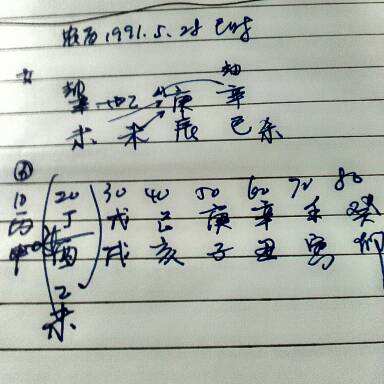 农历1991.5.28 巳时
劫
辛 乙 庚 辛
未 未 辰 巳
10 20 30 40 50 60 70 80
丙 丁 戊 己 庚 辛 壬 癸
申 酉 戌 亥 子 丑 寅 卯
乙
未